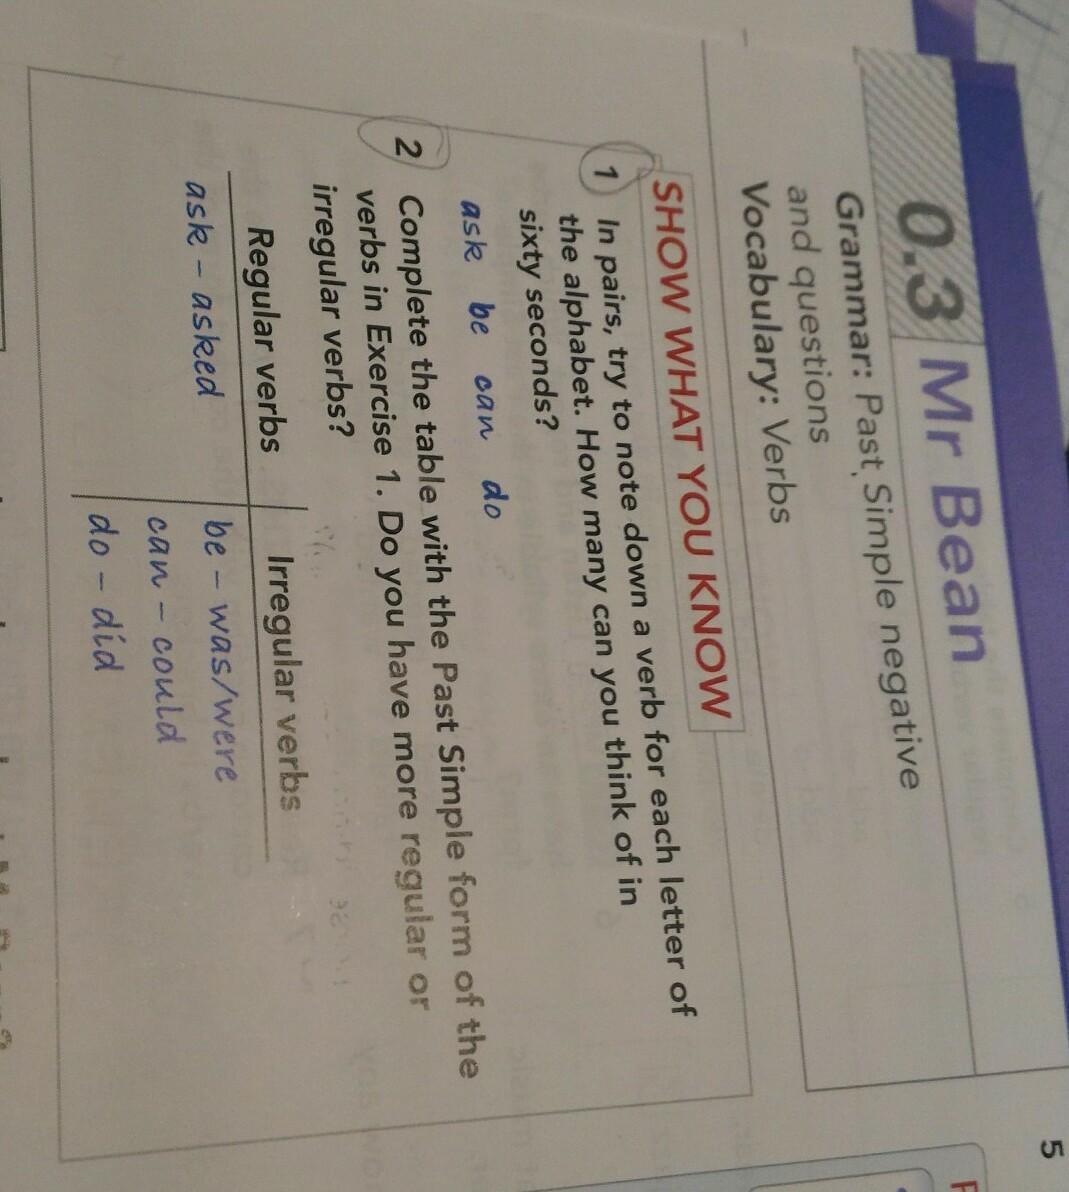 5
0.3 Mr Bean
Grammar: Past Simple negative
and questions
Vocabulary: Verbs
SHOW WHAT YOU KNOW
1 In pairs, try to note down a verb for each letter of
the alphabet. How many can you think of in
sixty seconds?
ask be can do
2 Complete the table with the Past Simple form of the
verbs in Exercise 1. Do you have more regular or
irregular verbs?
Regular verbs Irregular verbs
ask – asked be – was/were
can – could
do – did